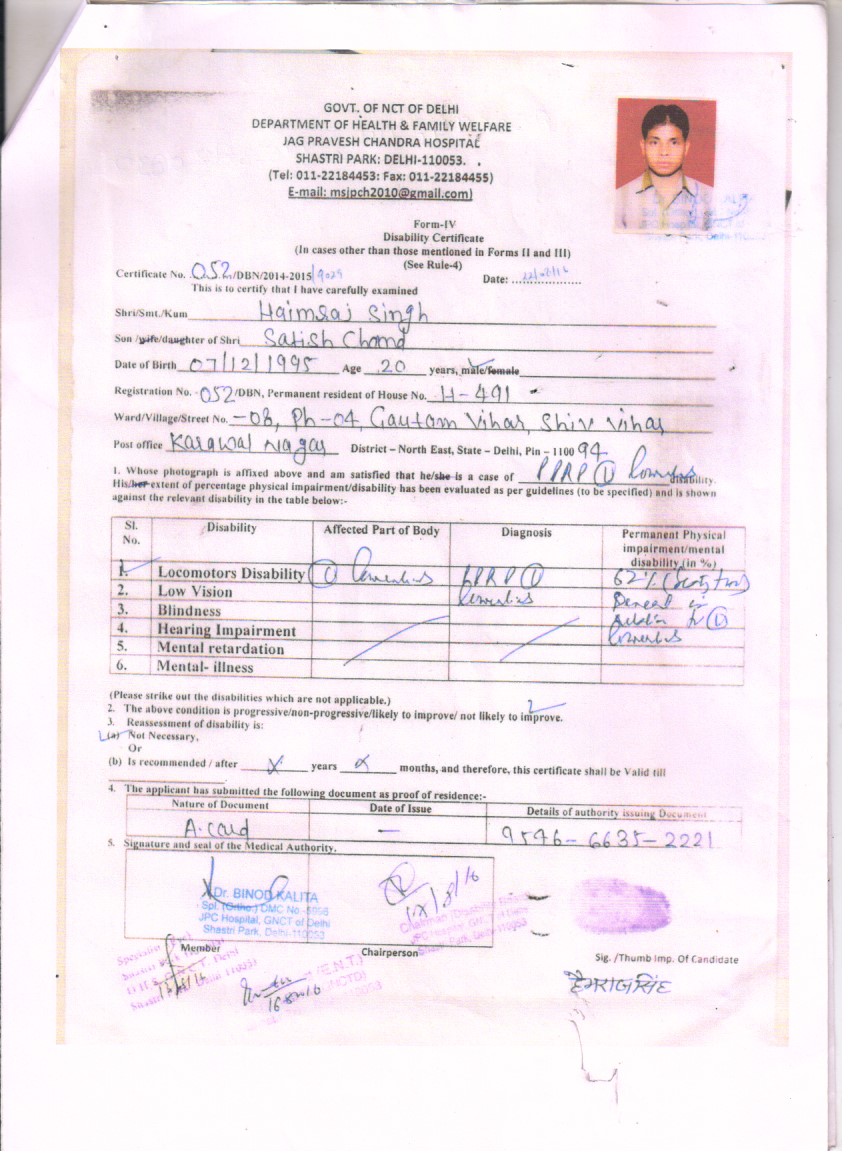 GOVT. OF NCT OF DELHI
DEPARTMENT OF HEALTH & FAMILY WELFARE
JAG PRAVESH CHANDRA HOSPITAL
SHASTRI PARK: DELHI-110053.
(Tel: 011-22184453: Fax: 011-22184455)
E-mail: msjpch2010@gmail.com)
Form-IV
Disability Certificate
(In cases other than those mentioned in Forms II and III)
(See Rule-4)
Certificate No. 052/DBN/2014-2015/9029 Date:
This is to certify that I have carefully examined
Shri/Smt./Kum Haimraj Singh
Son /wife/daughter of Shri Satish Chand
Date of Birth 07/12/1995 Age 20 years, male/female
Registration No. 052/DBN, Permanent resident of House No. H-491
Ward/Village/Street No. -08, Ph-04, Gautam Vihar, Shiv Vihar
Post office Karawal Nagar District – North East, State – Delhi, Pin – 110094
1. Whose photograph is affixed above and am satisfied that he/she is a case of PPRP disability.
His/her extent of percentage physical impairment/disability has been evaluated as per guidelines (to be specified) and is shown
against the relevant disability in the table below:-
Sl. No. Disability Affected Part of Body Diagnosis Permanent Physical impairment/mental disability (in %)
1. Locomotors Disability PPRP 62%
2. Low Vision
3. Blindness
4. Hearing Impairment
5. Mental retardation
6. Mental- illness
(Please strike out the disabilities which are not applicable.)
2. The above condition is progressive/non-progressive/likely to improve/ not likely to improve.
3. Reassessment of disability is:
(a) Not Necessary,
Or
(b) Is recommended / after X years X months, and therefore, this certificate shall be Valid till
4. The applicant has submitted the following document as proof of residence:-
Nature of Document Date of Issue Details of authority issuing Document
A.card — 9546-6635-2221
5. Signature and seal of the Medical Authority.
Dr. BINOD KALITA
Spl. (Ortho.) DMC No
JPC Hospital, GNCT of Delhi
Shastri Park, Delhi-110053
Member
Chairperson
Sig. /Thumb Imp. Of Candidate
हेमराजसिंह